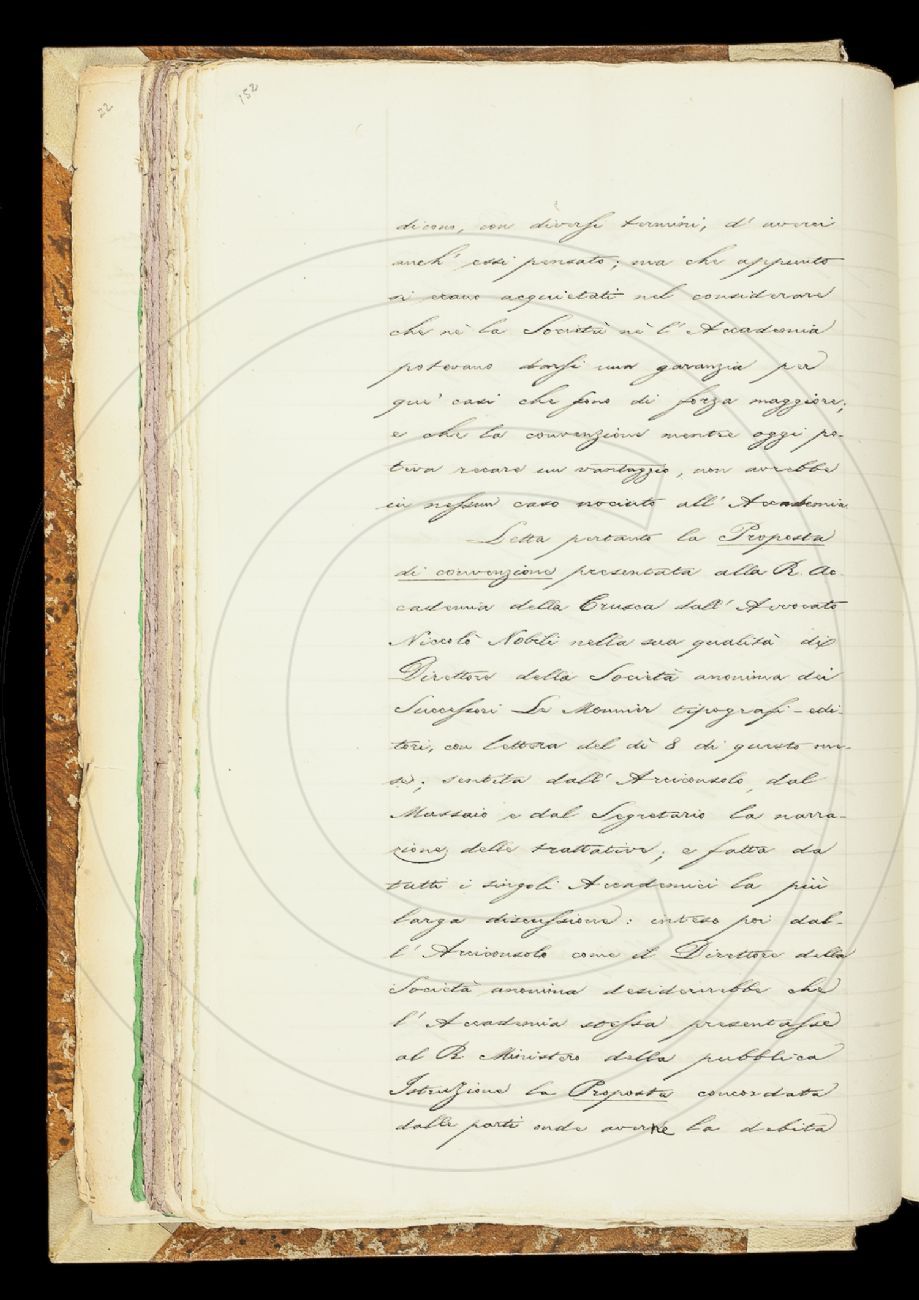 22
152
dicono, con diversi termini, d'averci
anch'essi pensato; ma che appunto
si erano acquietati nel considerare
che nè la Società nè l'Accademia
potevano darsi una garanzia per
que' casi che sono di forza maggiore;
e che la convenzione mentre oggi po-
teva recare un vantaggio, non avrebbe
in nessun caso nociuto all'Accademia.
Letta pertanto la Proposta
di convenzione presentata alla R. Ac-
cademia della Crusca dall'Avvocato
Niccolò Nobili nella sua qualità di
Direttore della Società anonima dei
Successori Le Monnier tipografi-edi-
tori, con lettera del dì 8 di questo me-
se; sentita dall'Arciconsolo, dal
Massaio e dal Segretario la narra-
zione delle trattative; e fatta da
tutti i singoli Accademici la più
larga discussione: inteso poi dal-
l'Arciconsolo come il Direttore della
Società anonima desidererebbe che
l'Accademia stessa presentasse
al R. Ministero della pubblica
Istruzione la Proposta concordata
dalle parti onde averne la debita